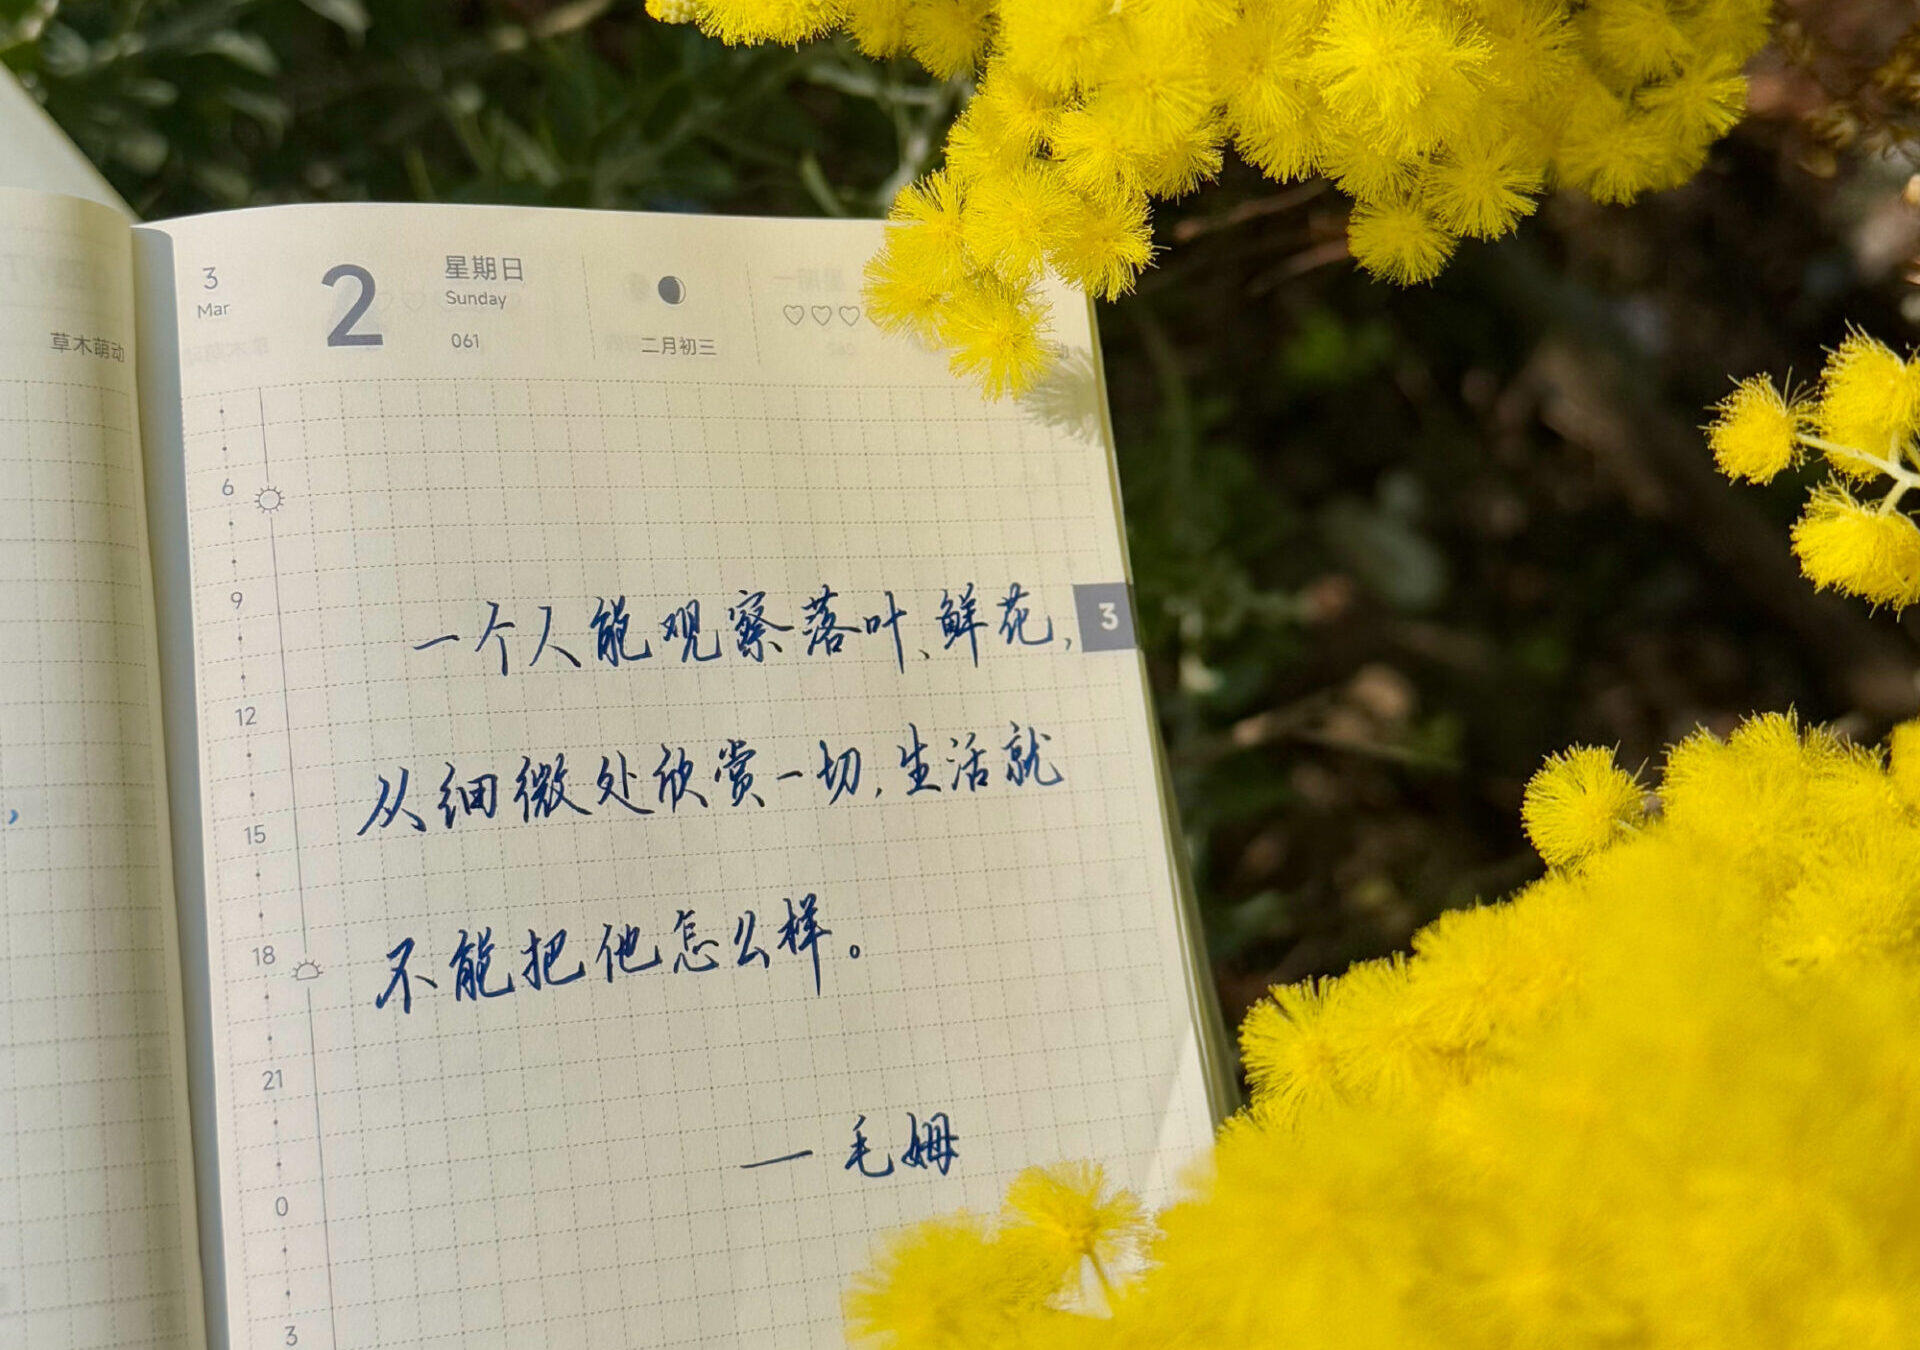 草木萌动
3
Mar
2
星期日
Sunday
061
二月初三
6
9
12
15
18
21
0
3
3
一个人能观察落叶、鲜花,
从细微处欣赏一切,生活就
不能把他怎么样。
— 毛姆